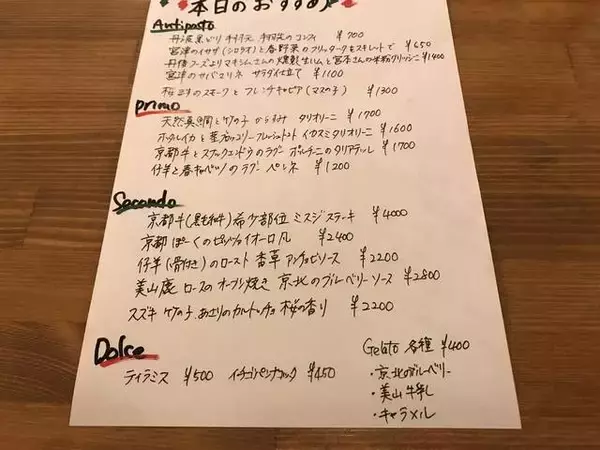 本日のおすすめ
Antipasto
丹波黒どり のコンフィ ¥700
宮津のイサザ(シロウオ)と春野菜のフリッタータをスキレットで ¥650
丹後フーズよりマキシムさんの燻製生ハムと宮本さんの米粉グリッシーニ ¥1400
宮津のサバマリネ サラダ仕立て ¥1100
桜ますのスモークと フレンチキャビア(マスの子) ¥1300
Primo
天然真鯛と竹の子 からすみ タリオリーニ ¥1700
ホタルイカと フレッシュトマト イカスミタリオリーニ ¥1600
京都牛とスナックエンドウのラグー ポルチーニのタリアテッレ ¥1700
仔羊と春キャベツのラグー ペンネ ¥1200
Secondo
京都牛(黒毛和牛)希少部位 ミスジステーキ ¥4000
京都ぽーくのピッツァイオーロ風 ¥2400
仔羊(骨付き)のロースト 香草アンチョビソース ¥2200
美山鹿 ロースのオーブン焼き 京北のブルーベリーソース ¥2800
スズキ 竹の子 あさりのカルトッチョ 桜の香り ¥2200
Dolce
ティラミス ¥500 イチゴパンナコッタ ¥450
Gelato 各種 ¥400
・京北のブルーベリー
・美山牛乳
・キャラメル